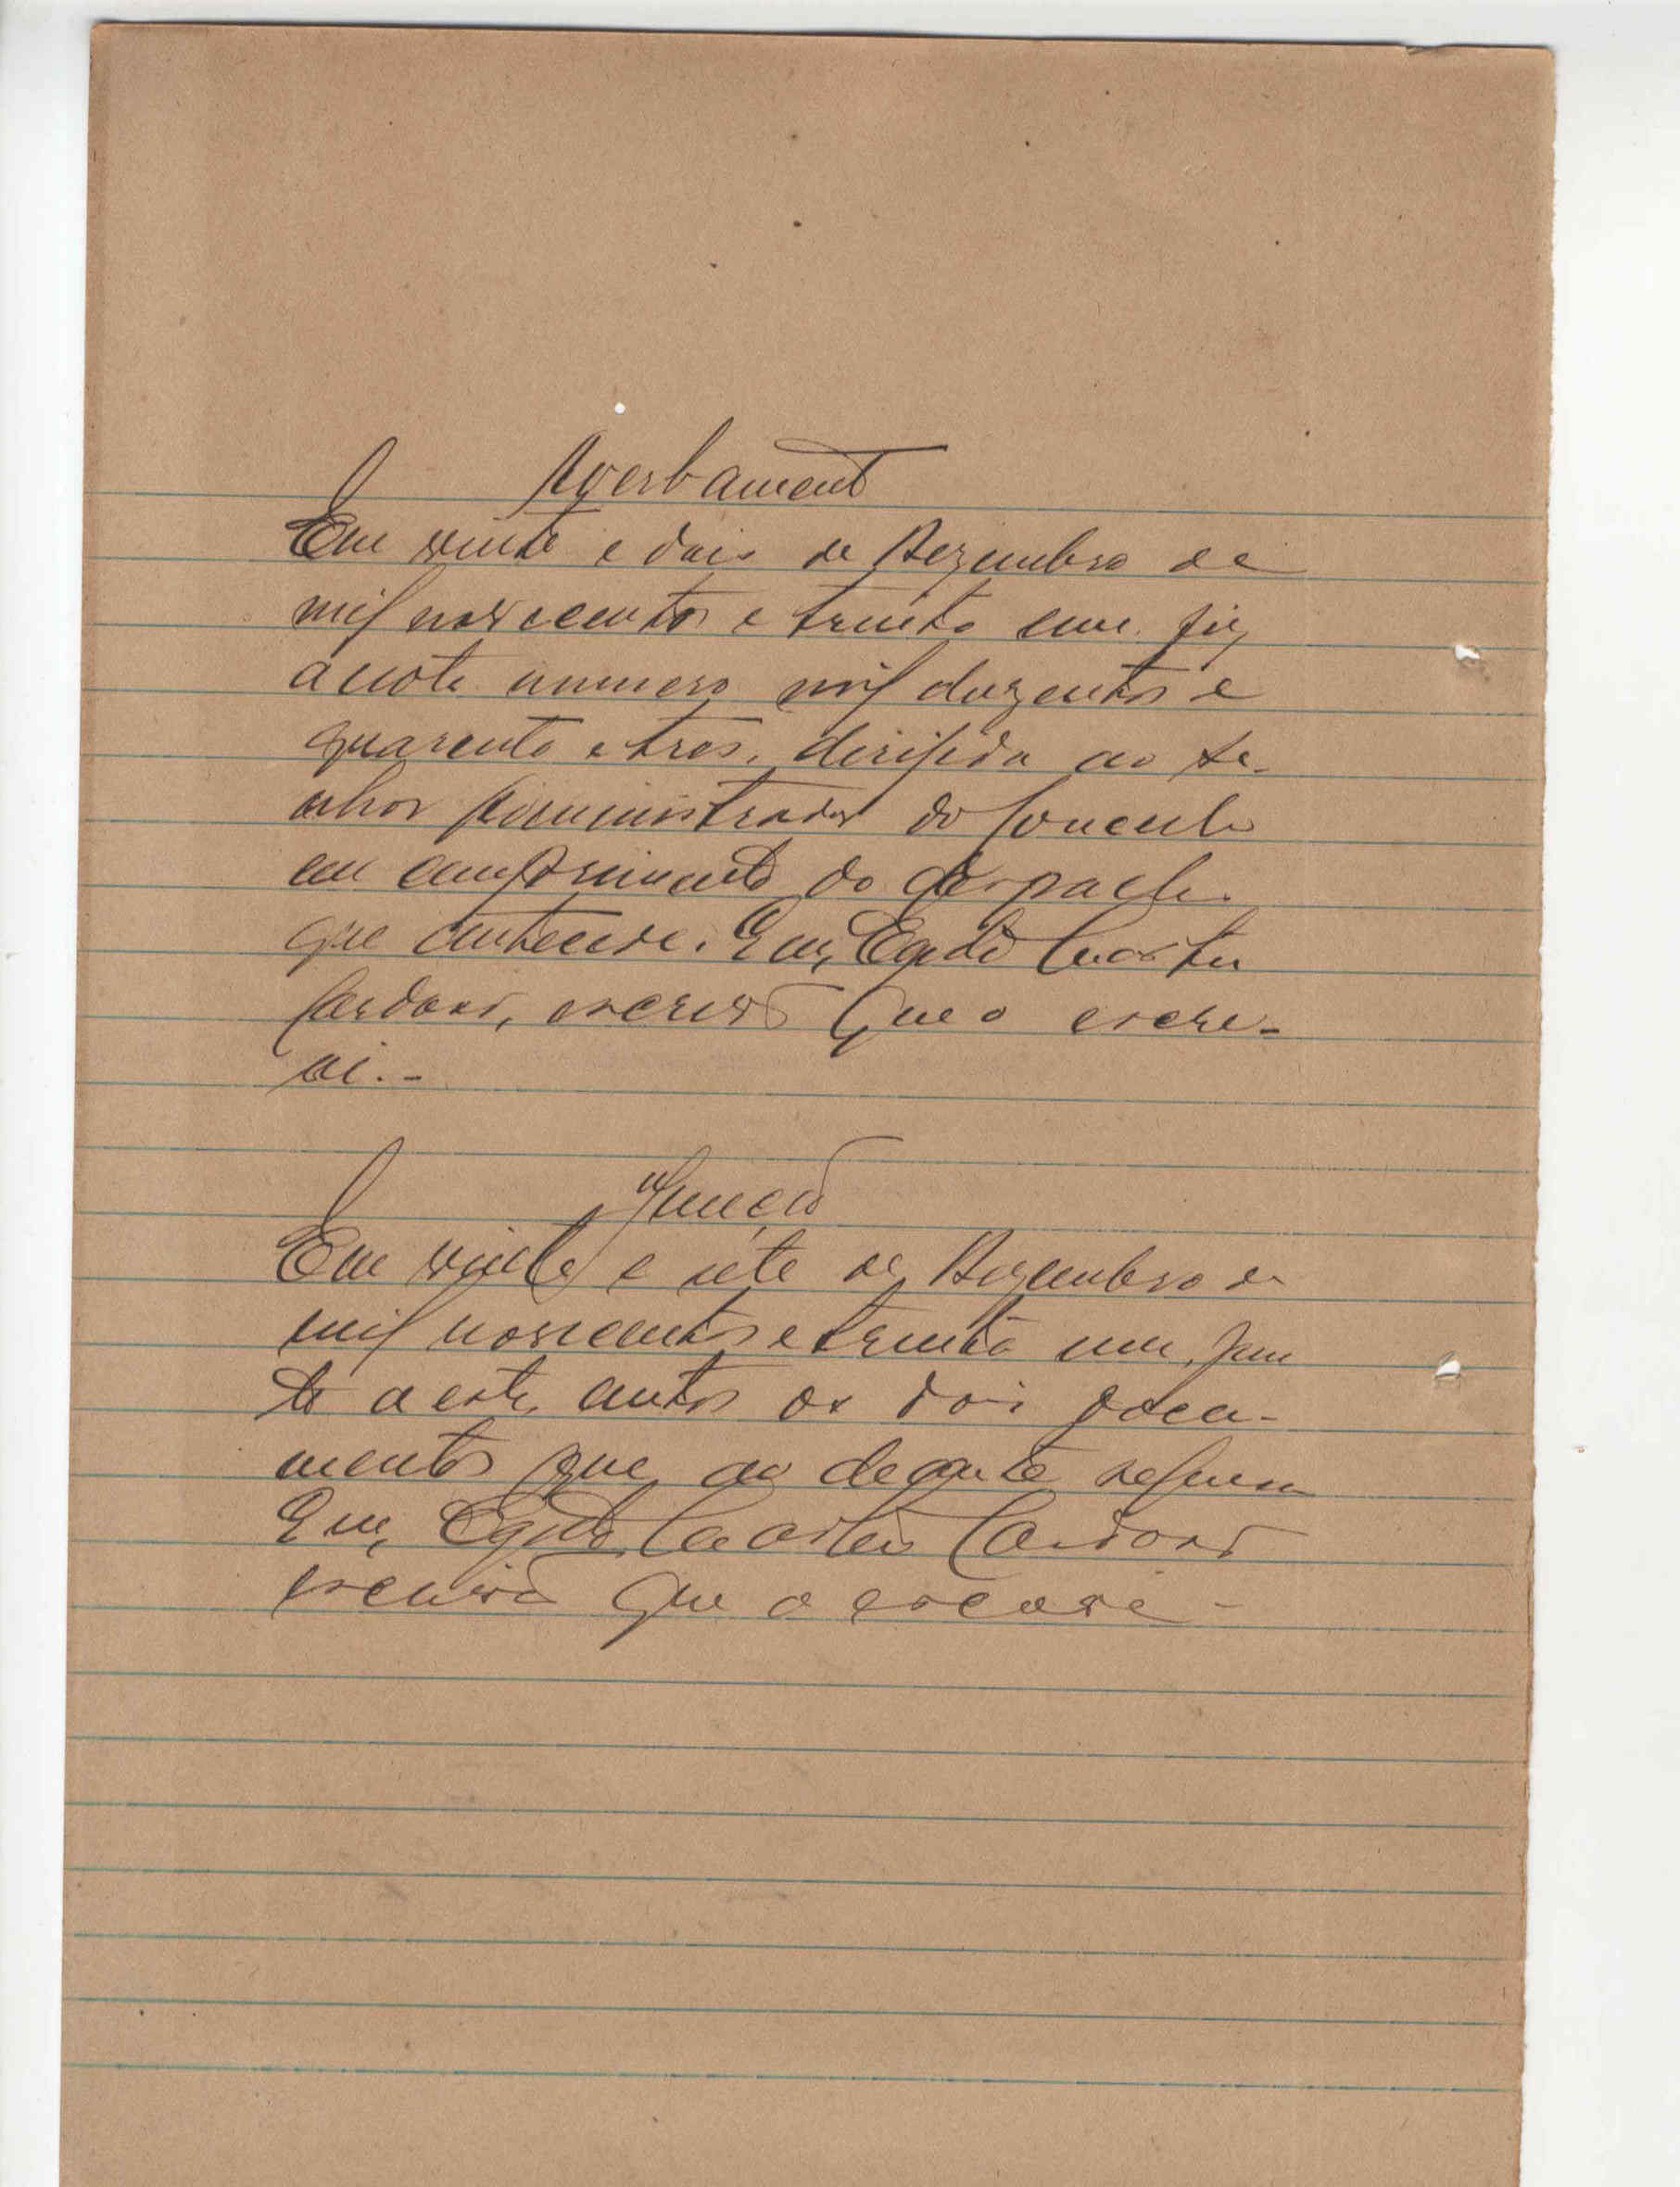 Averbamento
Em vinte e dois de Dezembro de
mil novecentos e trinta e um fiz
a nota numero mil duzentos e
quarenta e tres, dirigida ao Se-
nhor Administrador do Concelho
em cumprimento do despacho
que antecede. Eu, Egidio
Cardoso, escrivão que o escre-
vi.-
Junção
Em vinte e sete de Dezembro de
mil novecentos e trinta um, jun
to a estes autos os dois docu-
mentos que ao deante seguem
Eu, Egidio Cardoso
escrivão que o escrevi -